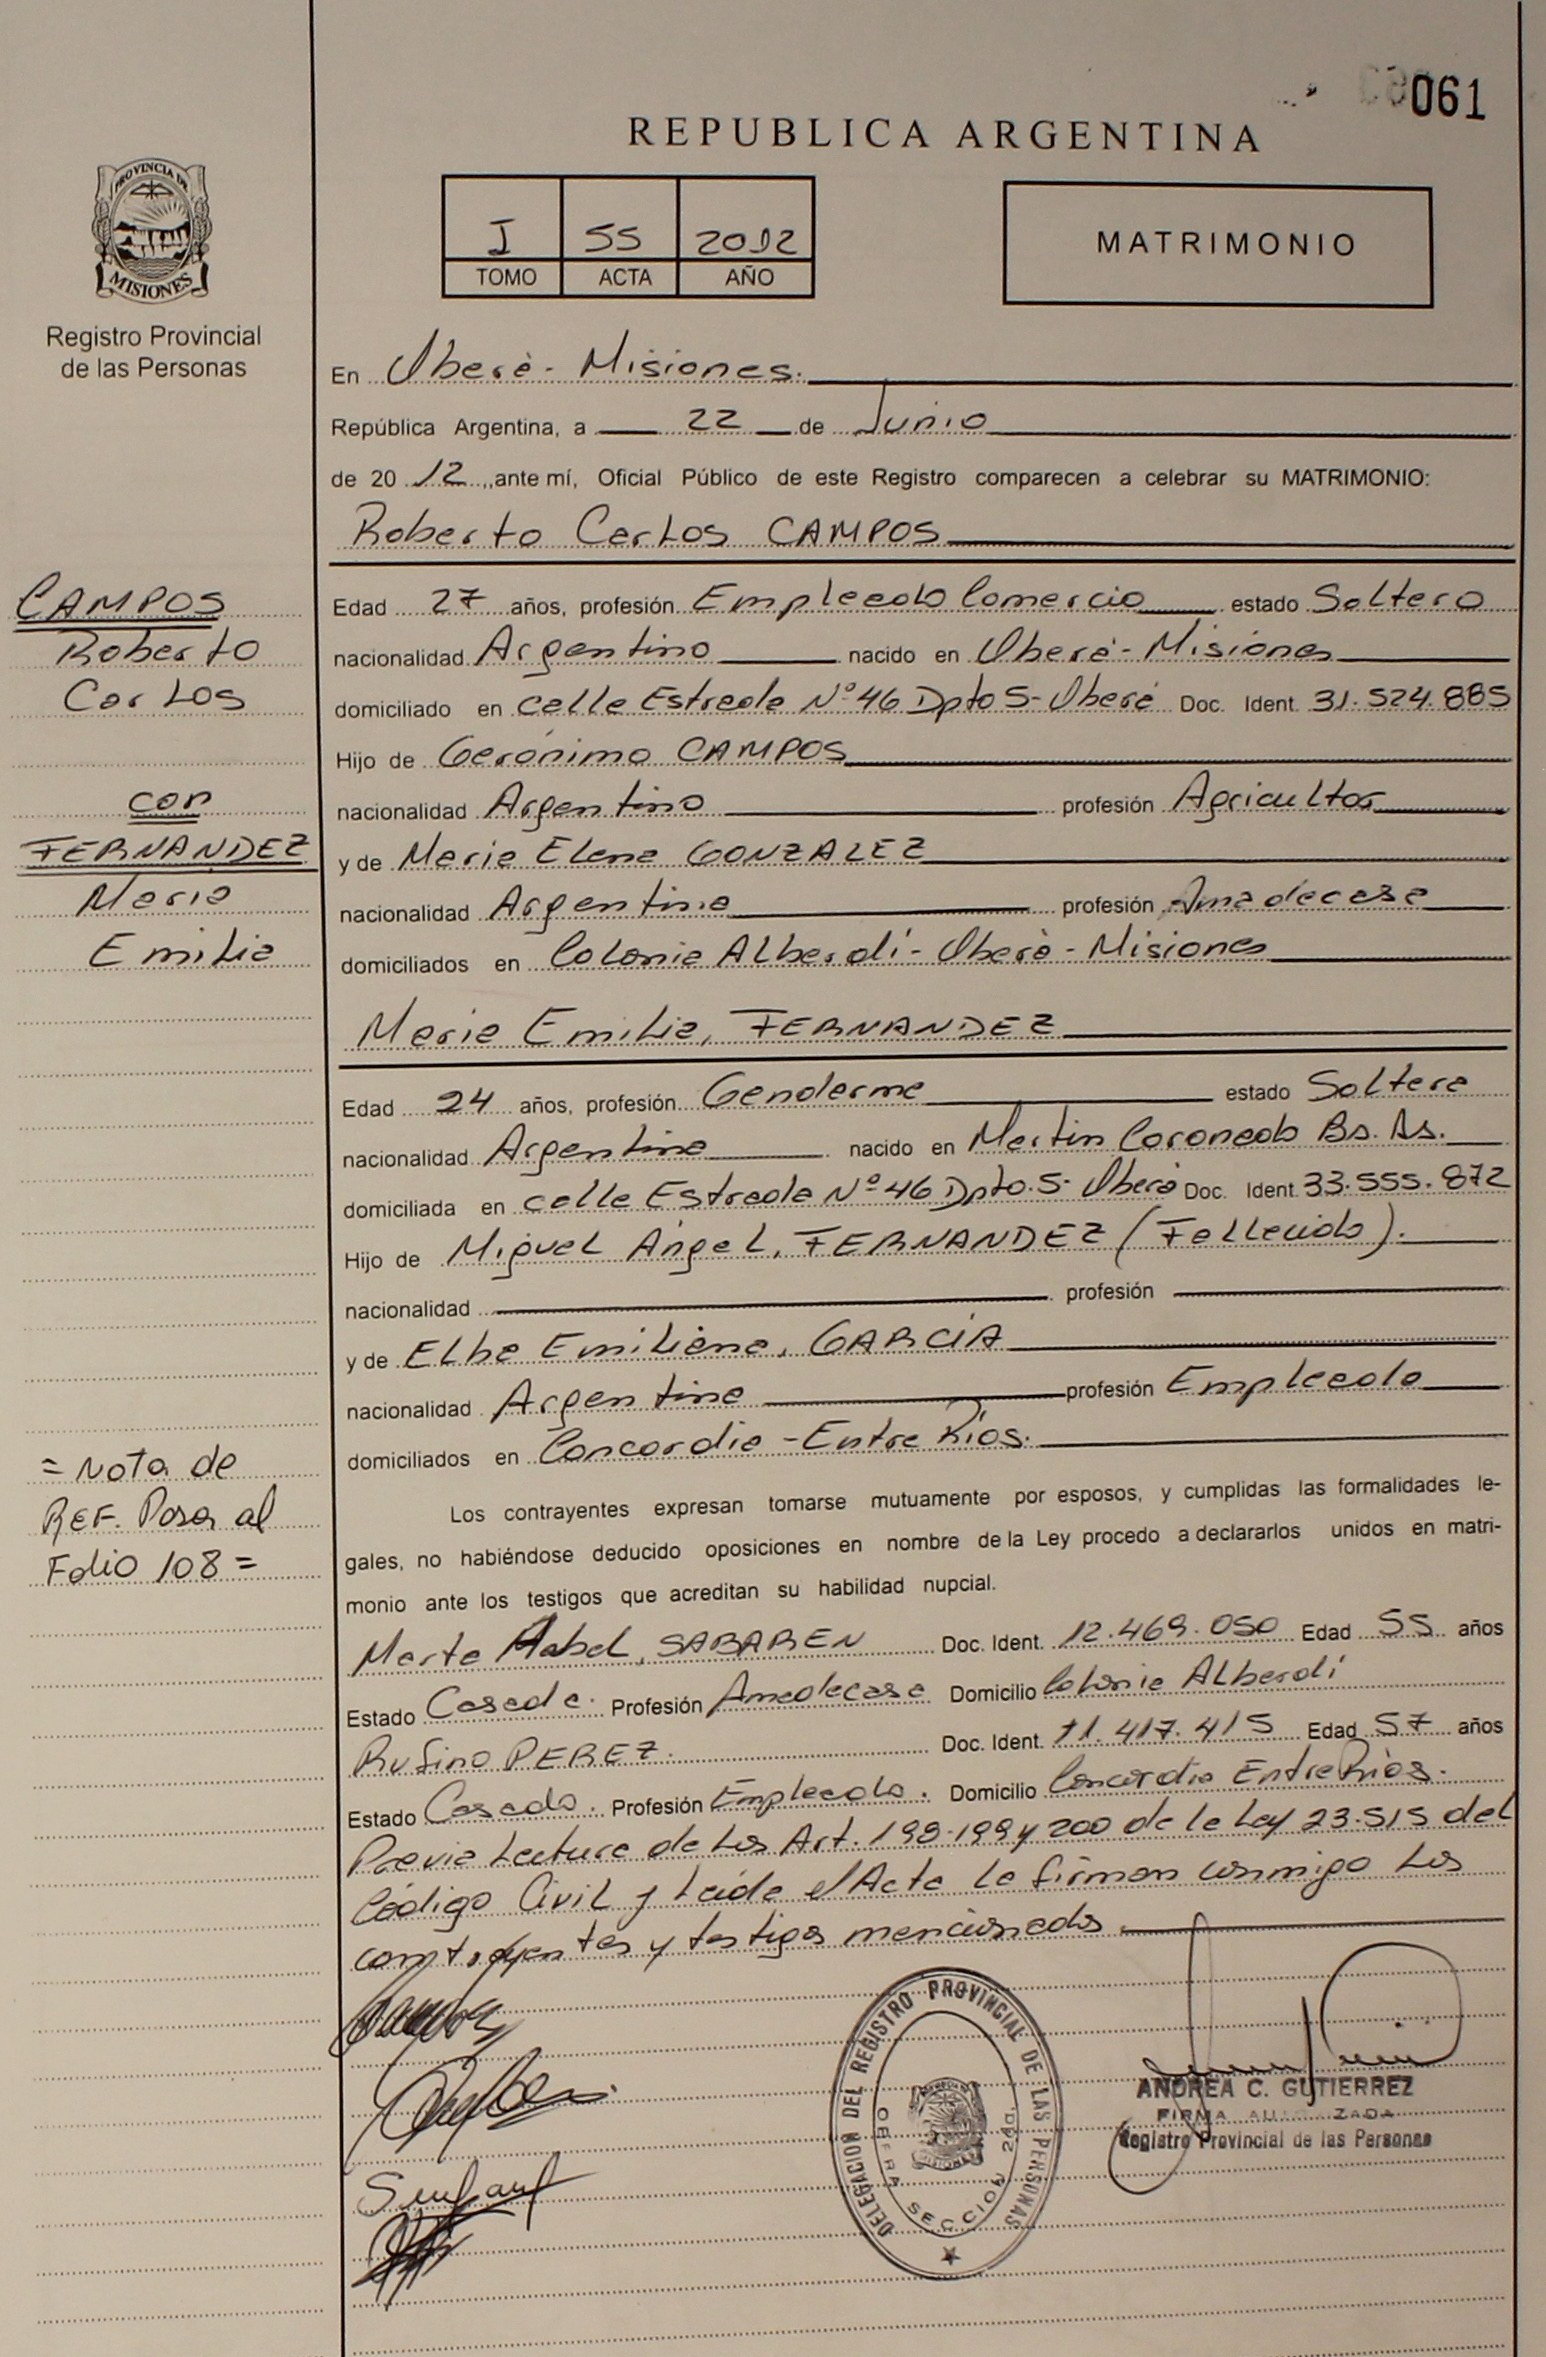 061
REPUBLICA ARGENTINA
PROVINCIA DE
MISIONES
Registro Provincial
de las Personas
I 55 2012
TOMO ACTA AÑO
MATRIMONIO
En Oberá - Misiones.
República Argentina, a 22 de Junio
de 20 12, ante mí, Oficial Público de este Registro comparecen a celebrar su MATRIMONIO:
Roberto Carlos CAMPOS
CAMPOS
Roberto
Carlos
con
FERNANDEZ
Maria
Emilia
Edad 27 años, profesión Empleado Comercio estado Soltero
nacionalidad Argentino nacido en Oberá - Misiones
domiciliado en calle Estrada Nº 46 Dpto 5 - Oberá Doc. Ident. 31.524.885
Hijo de Gerónimo CAMPOS
nacionalidad Argentino profesión Agricultor
y de Maria Elena GONZALEZ
nacionalidad Argentina profesión Ama de casa
domiciliados en Colonia Alberdí - Oberá - Misiones
Maria Emilia, FERNANDEZ
Edad 24 años, profesión Gendarme estado Soltera
nacionalidad Argentina nacido en Martin Coronado Bs. As.
domiciliada en calle Estrada Nº 46 Dpto. 5 - Oberá Doc. Ident. 33.555.872
Hijo de Miguel Ángel, FERNANDEZ (Fallecido).
nacionalidad profesión
y de Elba Emiliana, GARCÍA
nacionalidad Argentina profesión Empleada
domiciliados en Concordia - Entre Ríos.
= Nota de
REF. Pasa al
Folio 108 =
Los contrayentes expresan tomarse mutuamente por esposos, y cumplidas las formalidades le-
gales, no habiéndose deducido oposiciones en nombre de la Ley procedo a declararlos unidos en matri-
monio ante los testigos que acreditan su habilidad nupcial.
Marta Mabel, SABAREN Doc. Ident. 12.469.050 Edad 55 años
Estado Casada. Profesión Ama de casa Domicilio Colonia Alberdí
Rufino PEREZ. Doc. Ident. 11.417.415 Edad 57 años
Estado Casado. Profesión Empleado. Domicilio Concordia Entre Ríos.
Previa Lectura de Los Art. 198-199 y 200 de la Ley 23.515 del
Código Civil y Leída el Acta la firman conmigo Los
contrayentes y testigos mencionados.
DELEGACION DEL REGISTRO PROVINCIAL DE LAS PERSONAS
OBERA SECCION 2da.
ANDREA C. GUTIERREZ
FIRMA AUTORIZADA
Registro Provincial de las Personas